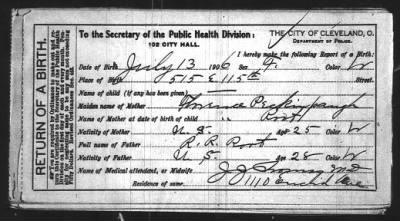 RETURN OF A BIRTH.
To the Secretary of the Public Health Division:
102 CITY HALL.
THE CITY OF CLEVELAND, O.
DEPARTMENT OF POLICE.
I hereby make the following Report of a Birth:
Date of Birth July 13 1906 Sex F. Color W
Place of Birth 515 E 115th Street.
Name of child (if any has been given)
Maiden name of Mother Florence Peckinpaugh
Name of Mother at date of birth of child " Root
Nativity of Mother U. S. Age 25 Color W
Full name of Father R. R. Root
Nativity of Father U. S. Age 28 Color W
Name of Medical attendant, or Midwife J. J. M.D
Residence of same, 1110 Euclid Ave